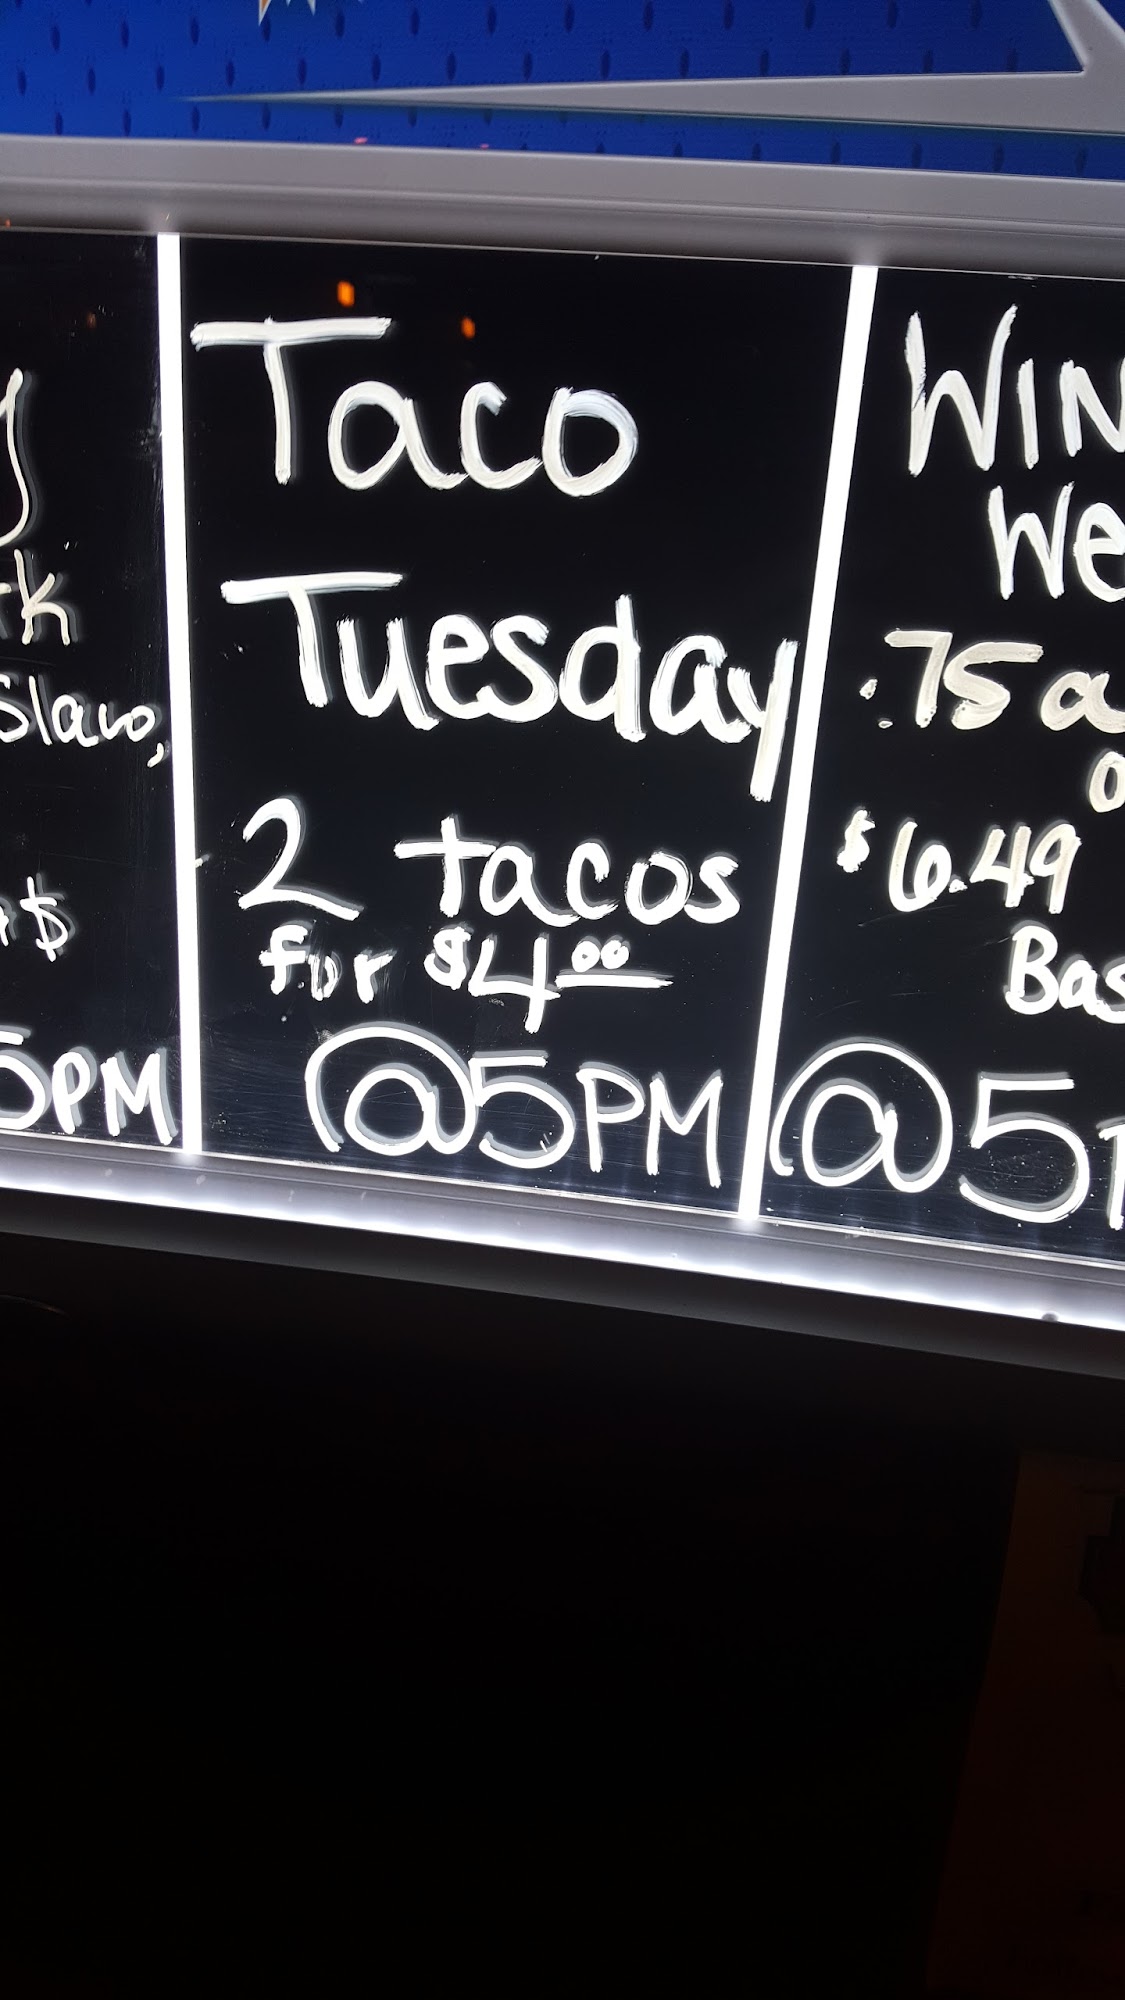 Slaw,
$
5PM
Taco
Tuesday
2 tacos
for $4.00
@5PM
WIN
We
.75 a
$6.49
Bas
@5P